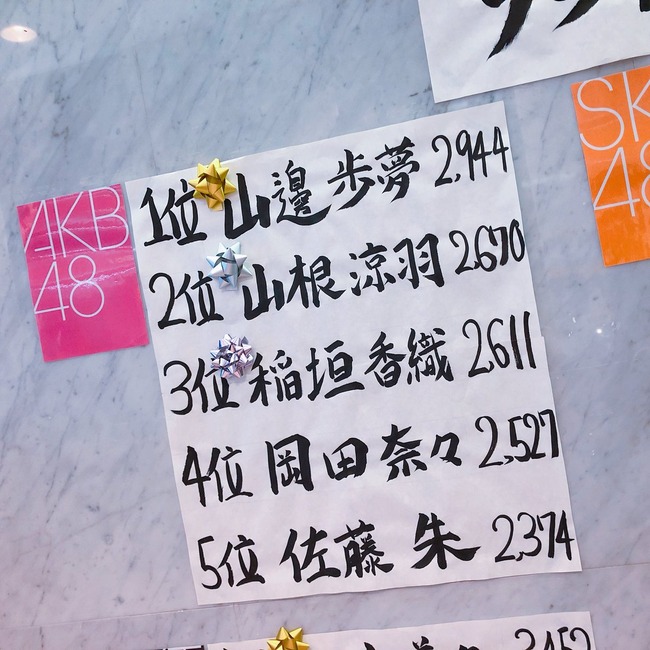 AKB
48
1位 山邊 歩夢 2,944
2位 山根 涼羽 2,670
3位 稲垣 香織 2,611
4位 岡田 奈々 2,527
5位 佐藤 朱 2,374
SK
48
3452